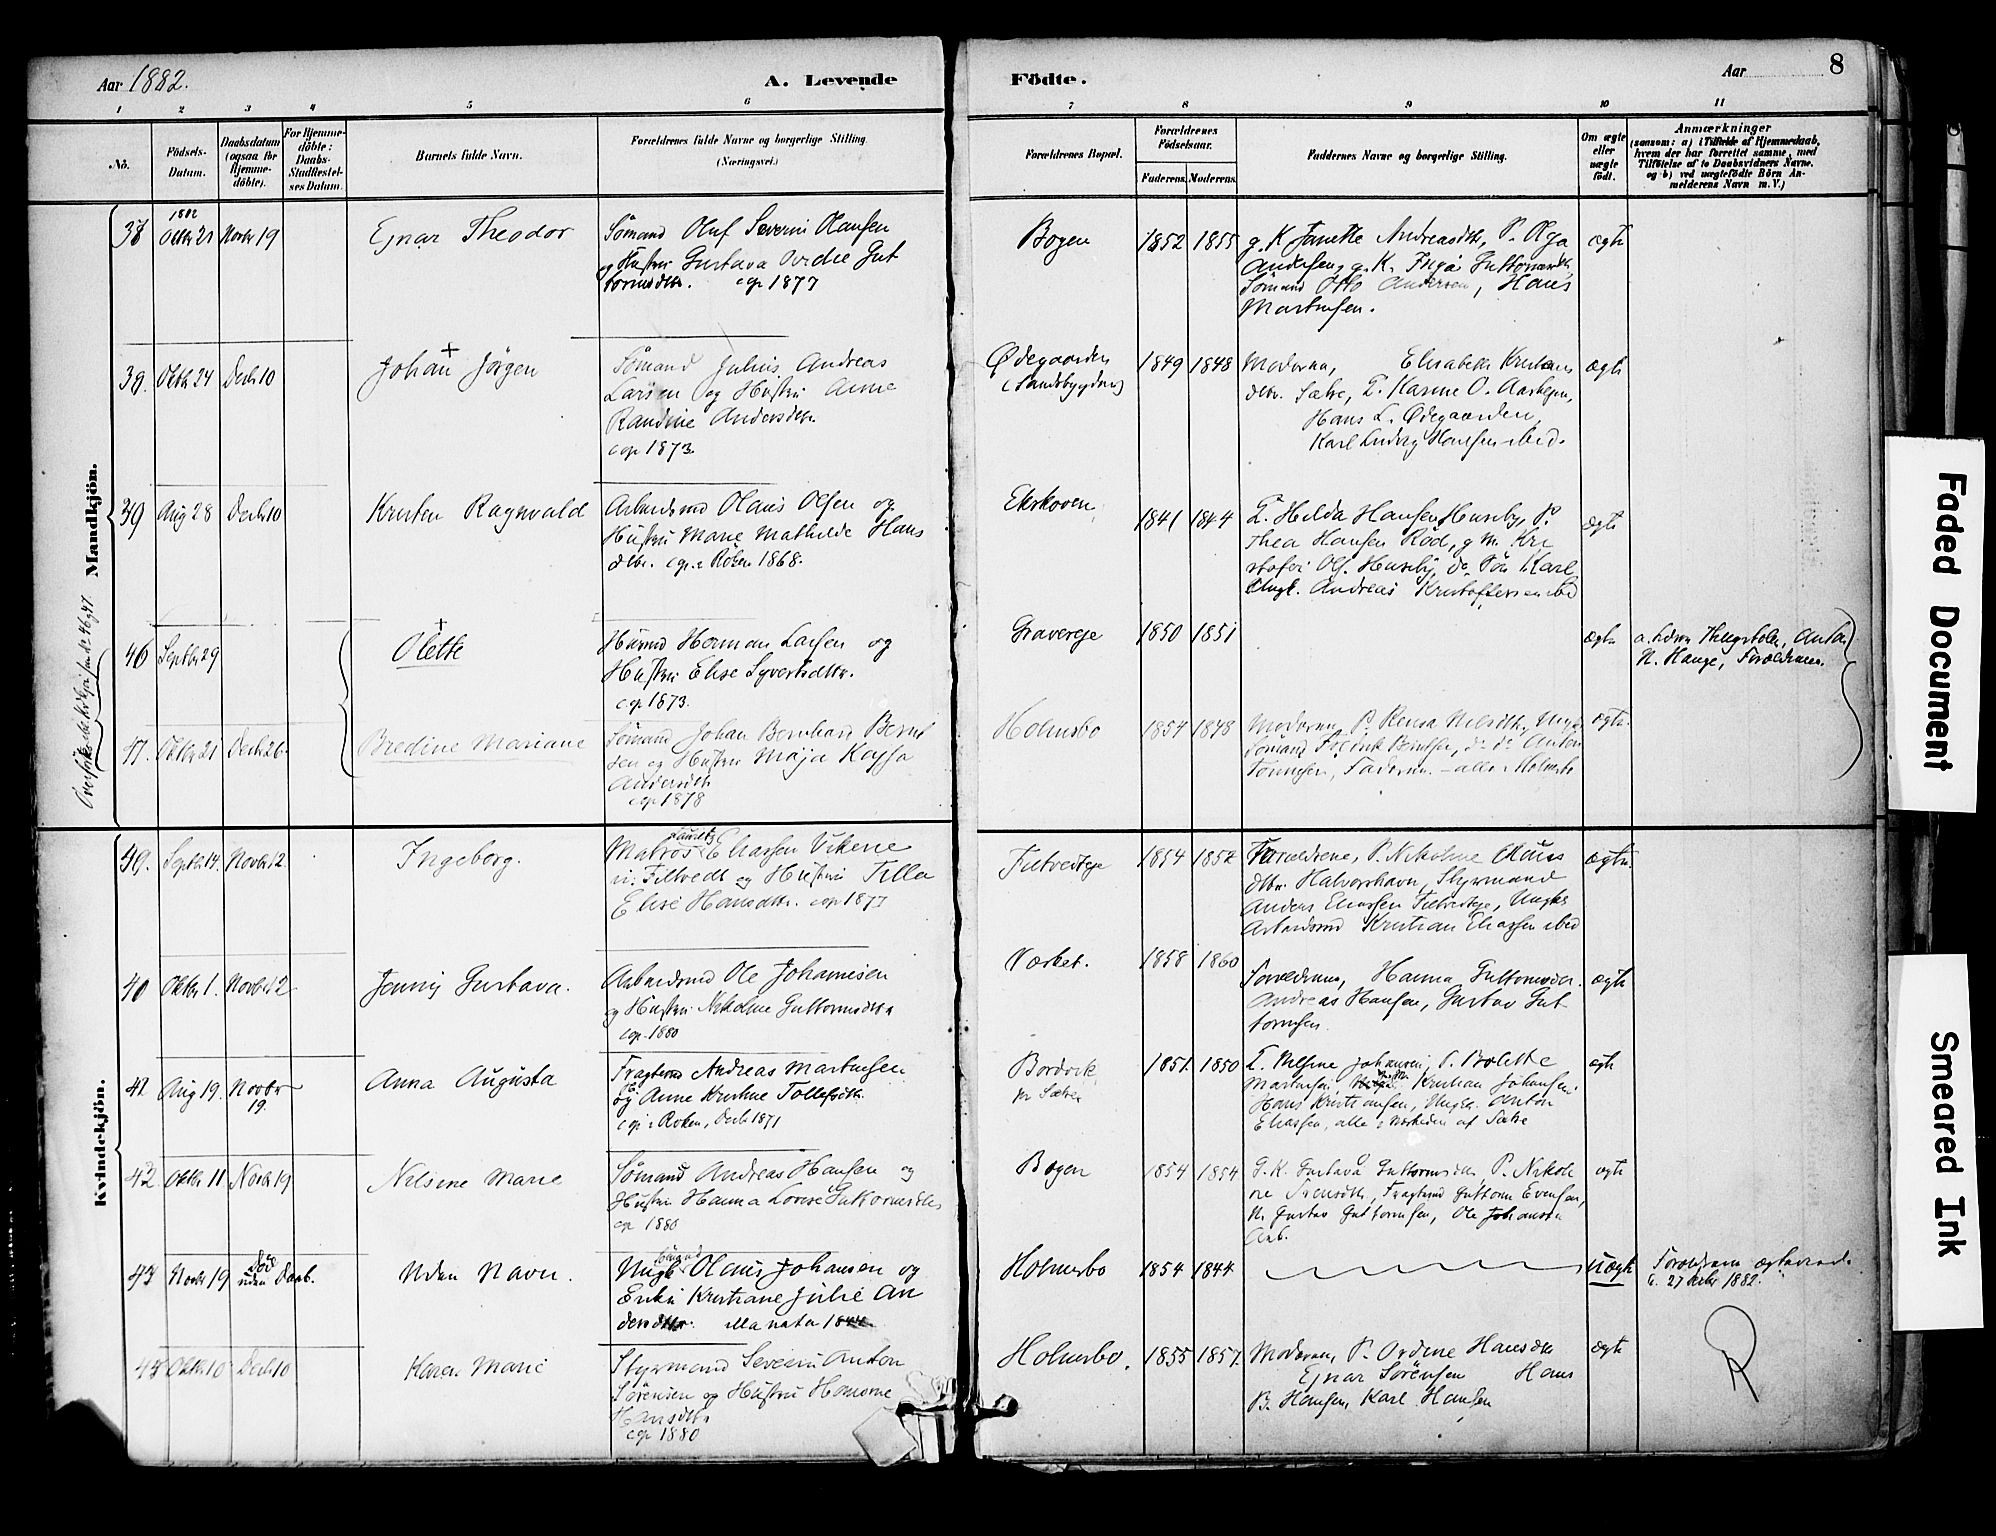 Aar 1882.
A. Levende
Födte.
Aar
8
1 2 3 4 5 6 7 8 9 10 11
No.
Födsels-
Datum.
Daabsdatum
(ogsaa for
Hjemme-
döbte).
For Hjemme-
döbte:
Daabs-
Stadfæstel-
ses Datum.
Barnets fulde Navn.
Forældrenes fulde Navne og borgerlige Stilling
(Næringsvei.)
Forældrenes Bopæl.
Forældrenes
Födselsaar.
Faderens. Moderens.
Faddernes Navne og borgerlige Stilling.
Om ægte
eller
uægte
födt.
Anmærkninger
(saasom: a) i Tilfælde af Hjemmedaab,
hvem der har forrettet samme, med
Tilföielse af to Daabsvidners Navne,
og b) ved uægtefödte Börn An-
melderens Navn m. V.)
Mandkjön.
38 1882 Oktbr 21 Novbr 19
Ejnar Theodor
Sømand Oluf Severin Olausen
og Hustru Gustava Ovedie Gut
tormsdtr. cop 1877
Bogen
1852 1855
g. K. Janette Andreasdtr, P. Olga
Andersen, g. K. Inga Guttormsdtr,
Sømand Otto Andersen, Hans
Martinsen.
ægte
39. Oktbr 24 Decbr 10
Johan Jörgen
Sømand Julius Andreas
Larsen og Hustru Anne
Randine Andersdtr.
cop 1873.
Ødegaarden
(Sandsbygden)
1849 1848
Moderen, Elisabeth Kristians
dtr. Sætre, E. Karine O. Aashegen,
Hans L. Ødegaarden,
Karl Ludvig Hansen ibid.
ægte
39 Aug 28 Decbr 10
Kristen Ragnvald
Arbeidsmd Olaus Olsen og
Hustru Marie Mathilde Hans
dtr. cop. i Röken 1868.
Ekskoven
1841 1844
E. Hilda Hansen Huseby, P.
Thea Hansen Röd, g M. Kri
stofer Ols. Huseby, Karl
Ungk. Andreas Kristoffersen ibid
ægte
46 Septbr 29
Olette
Husmd Herman Larsen og
Hustru Elise Syvertsdtr.
cop 1873.
Gravereje
1850 1851
ægte
N. Hauge, Forældrene.
47. Oktbr 21 Decbr 26
Bredine Mariane
Sømand Johan Bernhard Bernt
sen og Hustru Maja Kajsa
Andersdtr
cop 1878
Holmsbo
1854 1848
Moderen, P.
Faderen. - alle Holmsbo
ægte.
Kvindekjön.
39. Septbr 14 Novbr 12
Ingeborg.
Matros Eliassen Vikene
Filtvedt og Hustru Tilla
Elise Hansdtr. cop 1877
Filtvedteje
1854 1852
Forældrene, P. Nikoline Olaus
dtr. Halvorshavn, Styrmand
Anders Eliassen Filtvedteje, Ungks
Arbeidsmd Kristian Eliassen ibid
ægte.
40 Oktbr 1. Novbr 12
Jenny Gustava.
Arbeidsmd Ole Johannesen
og Hustru Nikoline Guttormsdtr
cop. 1880
Værket.
1858 1860
Forældrene, Hanna Guttormsdtr.
Andreas Hansen, Gustav Gut-
tormsen.
ægte
41 Aug 19. Novbr
19.
Anna Augusta
Fragtemd Andreas Martinsen
og Anne Kristine Tollefsdtr.
cop i Röken, Decbr 1871
Bordvik
pr Sætre
1851. 1850
E. Nilsine Johansen, P. Bolette
Martinsen, Kristian Johansen.
Hans Kristiansen, Ungk. Anton
Eliassen, alle i Nærheden af Sætre
ægte
42. Oktbr 11 Novbr 19
Nilsine Marie
Sømand Andreas Hansen og
Hustru Hanna Lovise Guttormsdtr,
cop 1880
Bogen
1854 1854
G. K. Gustava Guttormsdtr, P. Nikoli
ne Svensdtr, Fragtemd Guttorm Evensen,
M. Gustav Guttormsen, Ole Johansen
Arb.
ægte
43 Novbr 19 Död
uden Daab.
Uden Navn.
Sömand
Ungk Olaus Johansen og
Enke Kristiane Julie An
dersdtr.
Holmsbo
1854 1844
uægte
Forældrene
27 1882.
44 Oktbr 10 Decbr 10
Karen Marie
Styrmand Severin Anton
Sørensen og Hustru
Hansdtr
cop 1880
Holmsbo.
1855 1857.
Moderen, P. Ordine Hansdtr
Ejnar Sørensen Hans
B. Hansen, Karl Hansen
ægte
Faded Document
Smeared Ink